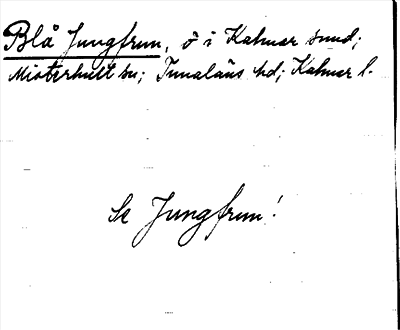 Blå Jungfrun, ö i Kalmar sund;
Misterhult sn; Tunaläns hd; Kalmar l.
Se Jungfrun!